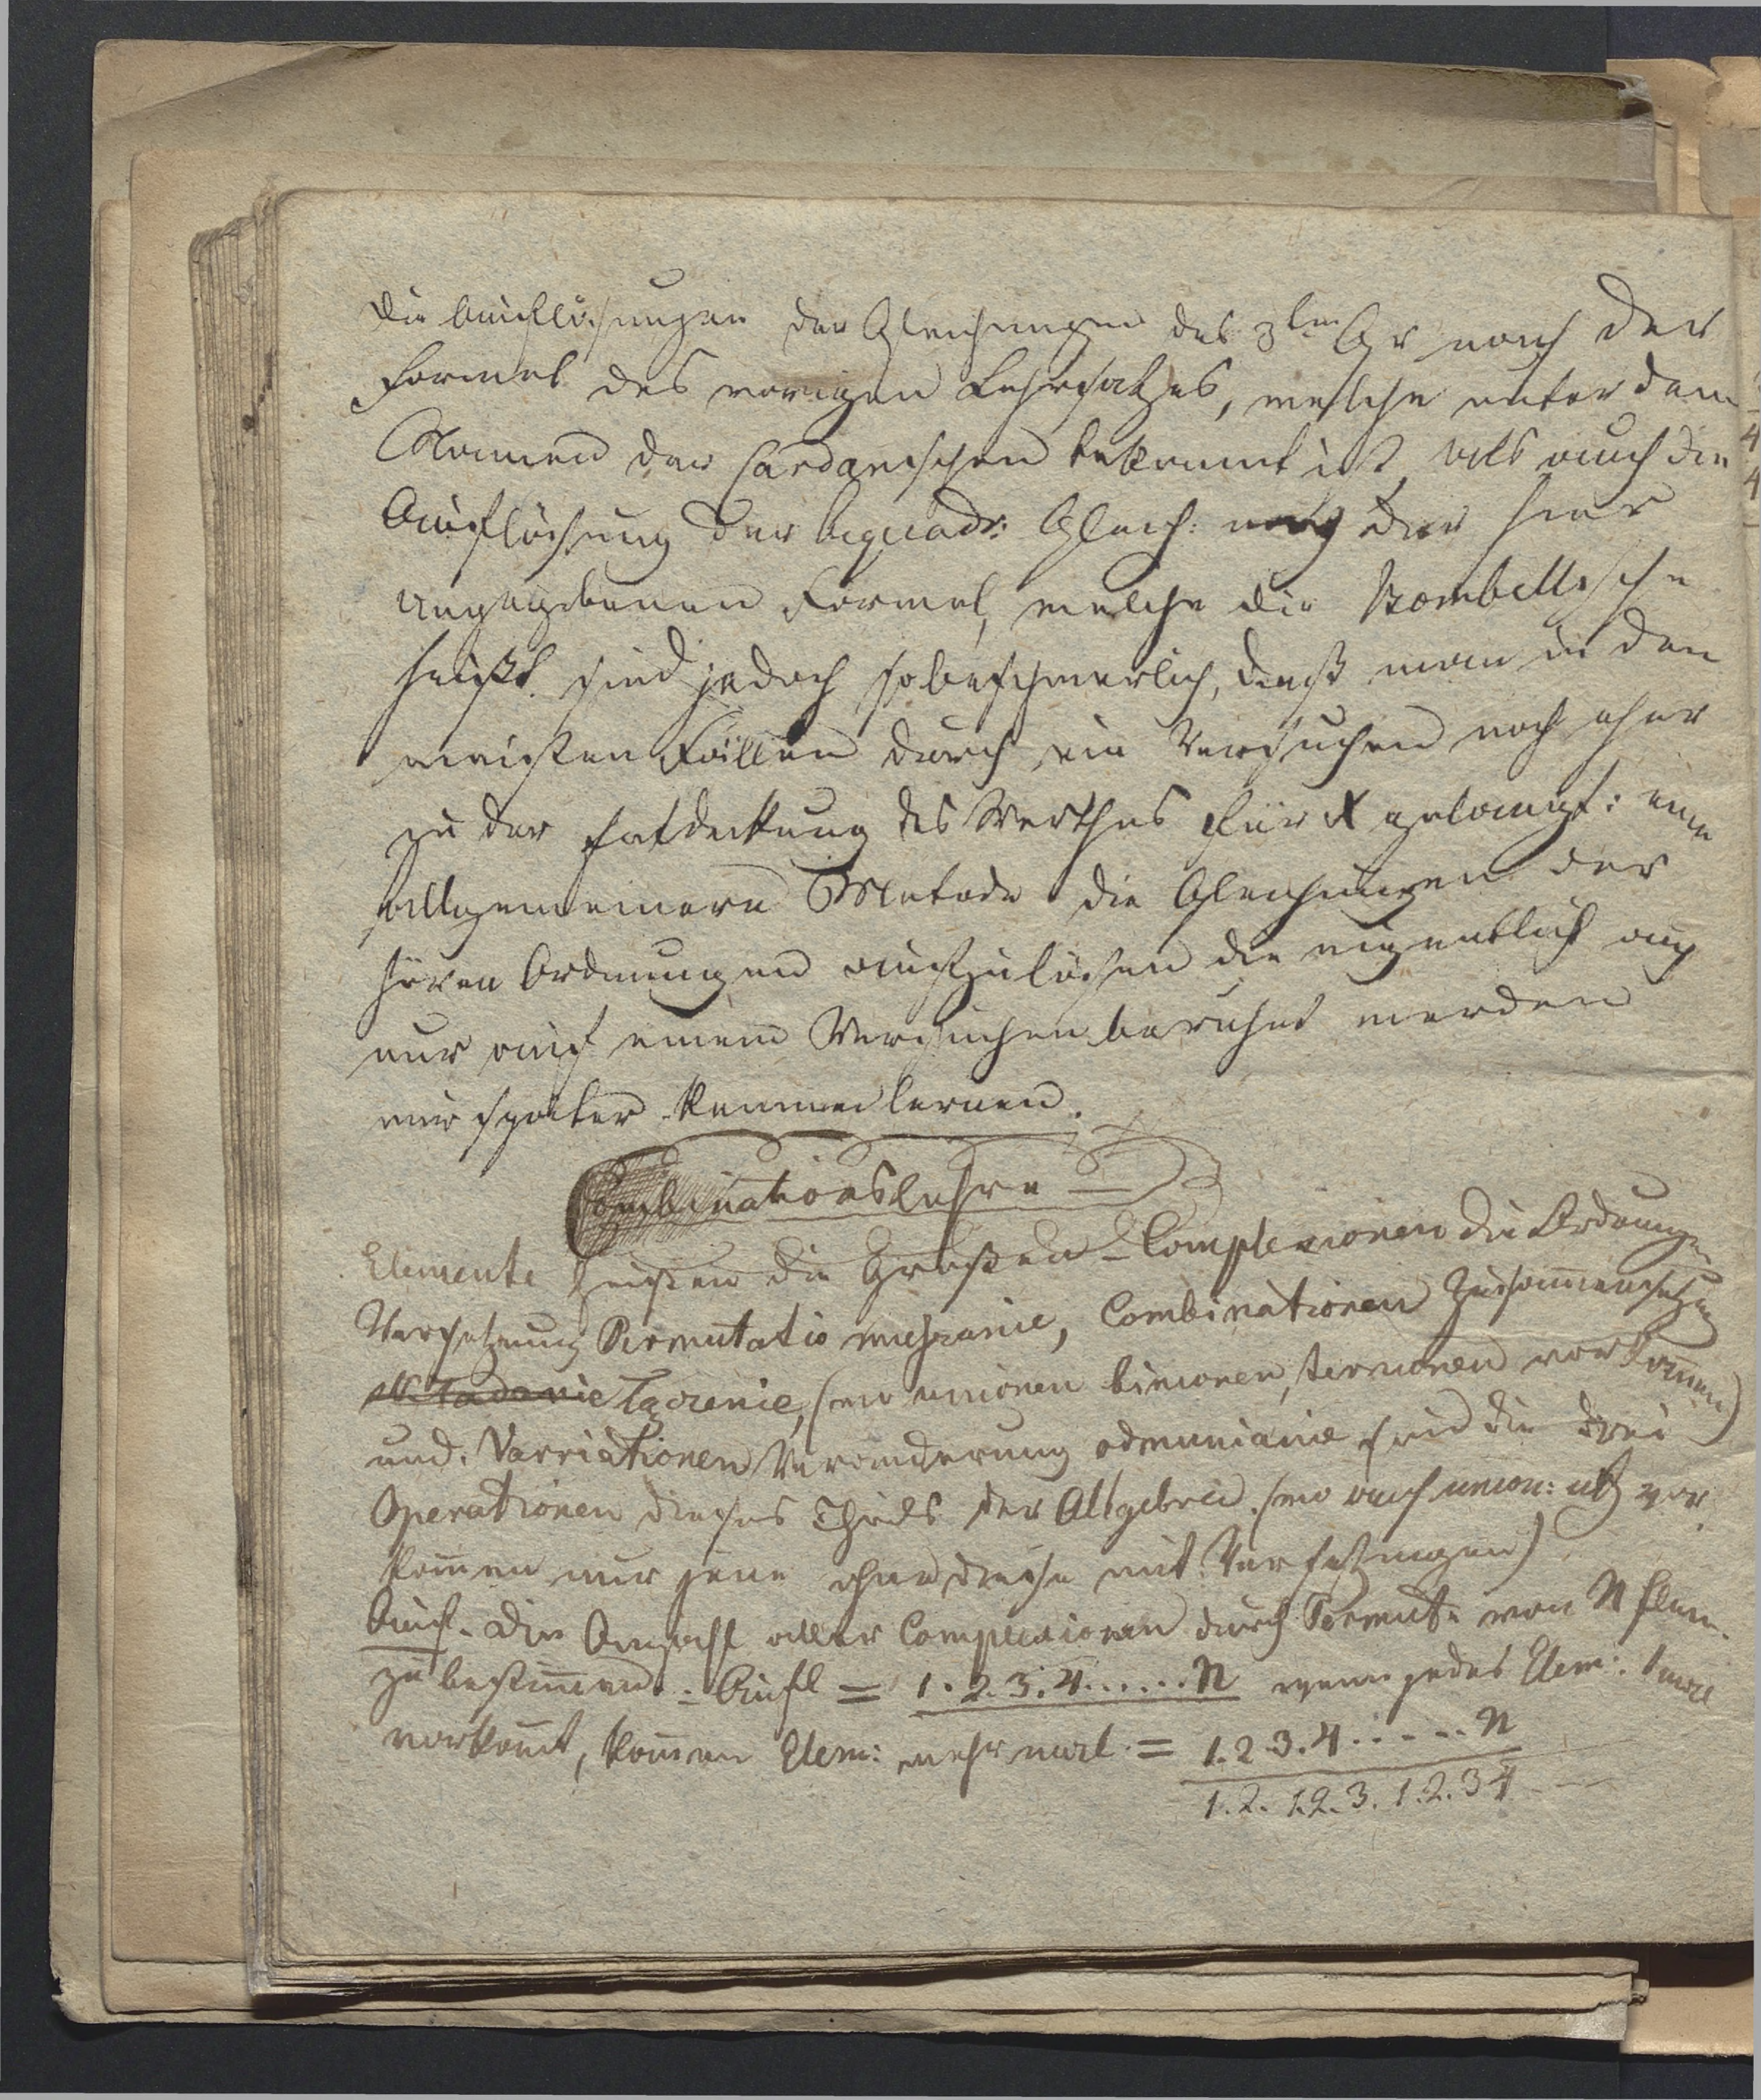 Die Auflösungen der Gleichungen des 3ten Gr nach der
Formel des vorigen Lehrsatzes, welche unter dem
Namen der Cardanischen bekannt ist, als auch die
Auflösung der biquadr: Gleich: nach der hier
angegebenen Formel, welche die Bombellische
heißt sind jedoch so beschwerlich, daß man in den
meisten Fällen durch ein Versuchen noch eher
zu der Entdeckung des Werthes für X gelangt: eine
allgemeinere Metode die Gleichungen der
hören Ordnungen aufzulösen die eigentlich auch
nur auf einem Versuchen beruhet werden
wir später kennen lernen.
Combinationslehre
Elemente heißen die Großen – Complexionen die Ordnungen
Versetzung Permutatio mięszanie, Combinationen Zusammensetzung
Łączenie, (wo unionen binionen, ternionen vorkom̄en)
und Varriationen Veränderung odmienianie sind die drei
Operationen dieses Theils der Allgebra. (wo auch union: etc vor
kom̄en nur jene ohne diese mit Versetzungen)
Aufl. Die Anzahl aller Complexionen durch Permut: von N Elem.
zu bestim̄en. : Aufl = 1.2.3.4......N wenn jedes Elem: 1 mal
vorkom̄t, kom̄en Elem: mehrmal = 1.2.3.4......n
1.2. 1.2.3. 1.2.3 4 – –